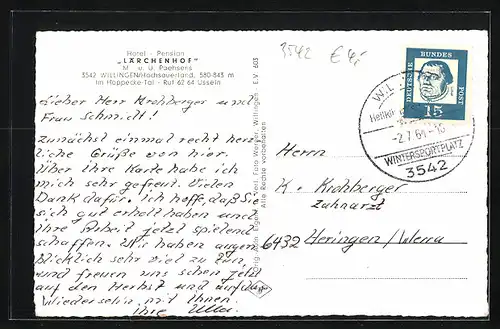 Hotel - Pension
"LÄRCHENHOF"
M. u. U. Paehsens
3542 WILLINGEN/Hochsauerland, 580-843 m
im Hoppecke-Tal - Ruf 62 64 Usseln
Lieber Herr Kirchberger und
Frau Schmidt!
Zunächst einmal recht herz-
liche Grüße von hier.
Über Ihre Karte habe ich
mich sehr gefreut. Vielen
Dank dafür. Ich hoffe, daß Sie
sich gut erholt haben und
Ihre Arbeit jetzt spielend
schaffen. Wir haben augen-
blicklich sehr viel zu tun
und freuen uns schon jetzt
auf den Herbst und auf ein
Wiedersehn mit Ihnen.
Ihre Ulla.
Alle Rechte vorbehalten
3542 €
DEUTSCHE BUNDES POST
15
-2.7.64
WINTERSPORTPLATZ
3542
Herrn
K. Kirchberger
Zahnarzt
6432 Heringen/Werra